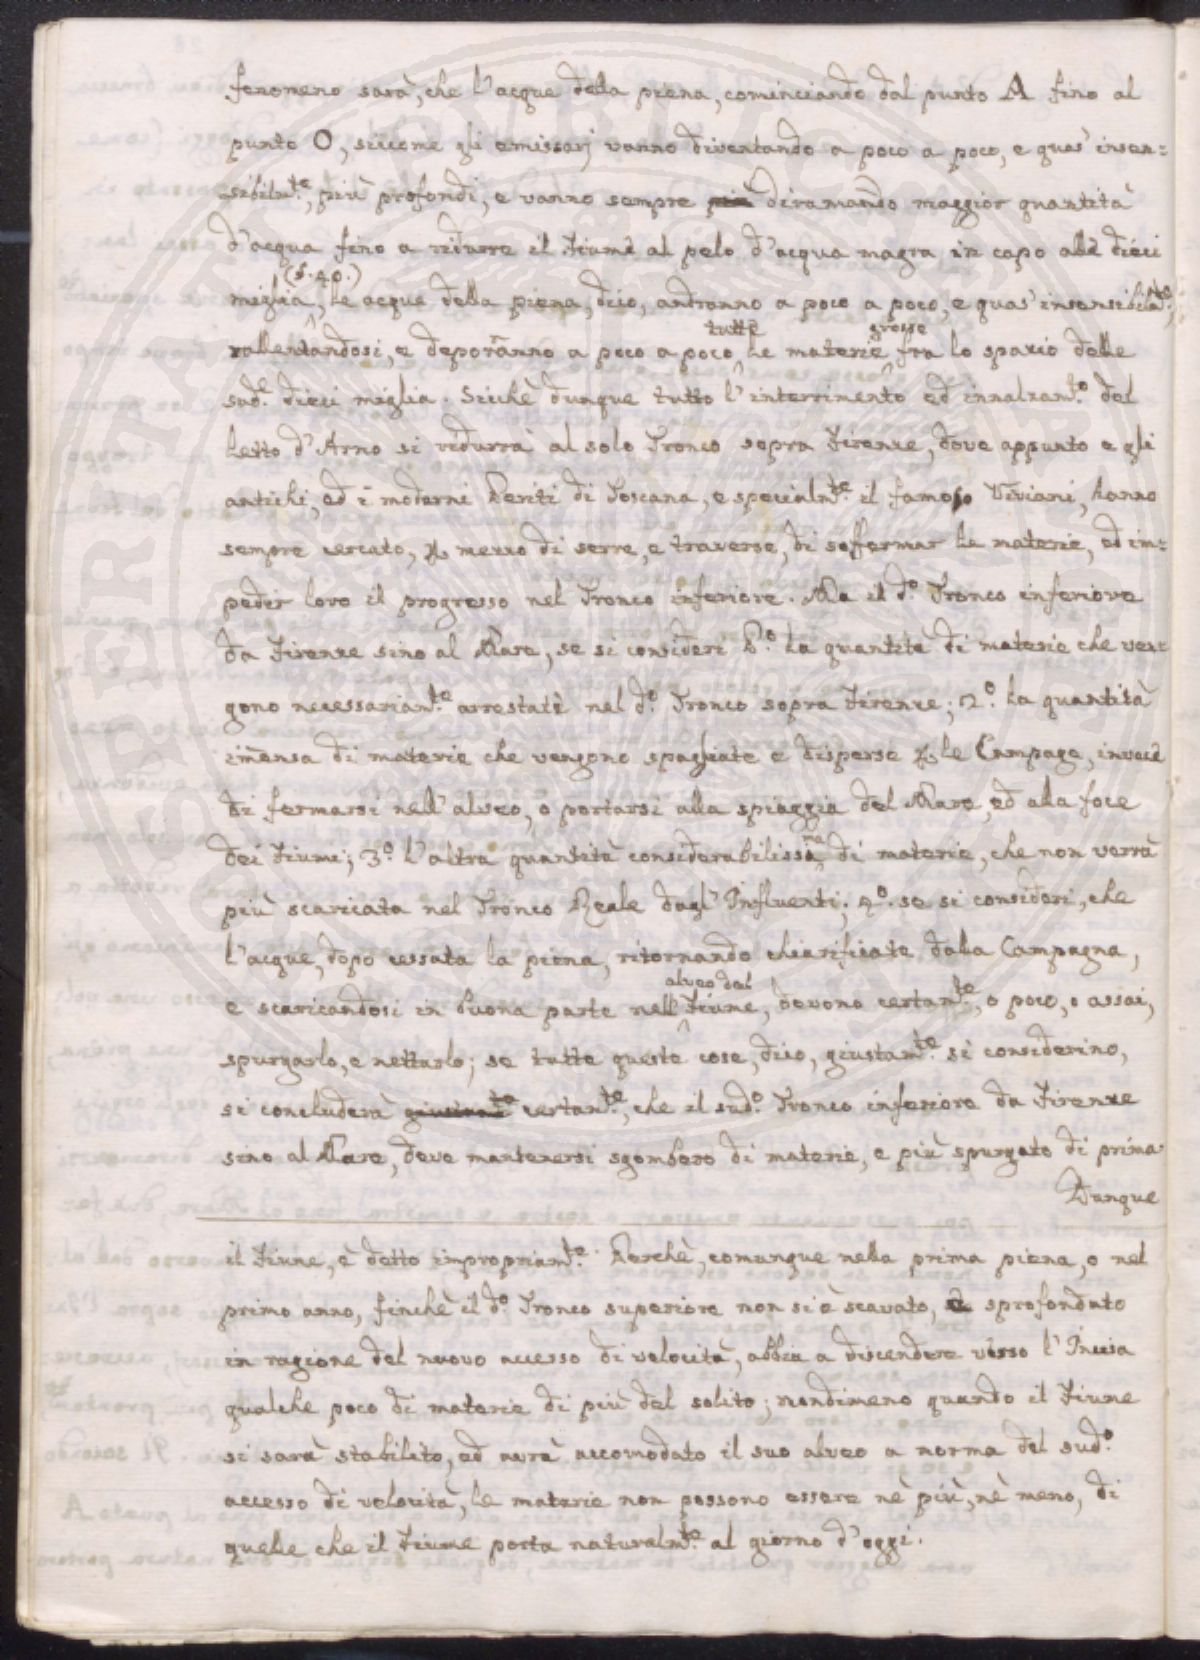 fenomeno sarà, che l'acque della piena, cominciando dal punto A fino al
punto O, siccome gli emissarj vanno diventando a poco a poco, e quas' insen-
sibilm.te, più profondi, e vanno sempre più diramando maggior quantità
d'acqua fino a ridurre il Fiume al pelo d'acqua magra in capo alle dieci
miglia (§. 40.), le acque della piena, dico, andranno a poco a poco, e quas' insensibilm.te,
rallentandosi, e deporranno a poco a poco tutte le materie grosse fra lo spazio delle
sud.e dieci miglia. Sicchè dunque tutto l'interrimento ed innalzam.o del
Letto d'Arno si ridurrà al solo Tronco sopra Firenze, dove appunto e gli
antichi, ed i moderni Periti di Toscana, e specialm.te il famoso Viviani, hanno
sempre cercato, p mezzo di serre, e traverse, di soffermar le materie, ed im-
pedir loro il progresso nel Tronco inferiore. Ma il d.o Tronco inferiore
da Firenze sino al Mare, se si consideri P.o La quantità di materie che ven-
gono necessariam.te arrestate nel d.o Tronco sopra Firenze; 2.o La quantità
imensa di materie che vengono spagliate e disperse p le Campage, invece
di fermarsi nell'alveo, o portarsi alla spiaggia del Mare, ed alla foce
dei Fiumi; 3.o L'altra quantità considerabilissima di materie, che non verrà
più scaricata nel Tronco Reale dagl'Influenti; 4.o se si consideri, che
l'acque, dopo cessata la piena, ritornando chiarificate dalla Campagna,
e scaricandosi in buona parte nell'alveo del Fiume, devono certam.te, o poco, o assai,
spurgarlo, e nettarlo; se tutte queste cose, dico, giustam.te si considerino,
si concluderà certam.te, che il sud.o Tronco inferiore da Firenze
sino al Mare, deve mantenersi sgombero di materie, e più spurgato di prima.
Dunque
il Fiume, è detto impropriam.te. Perchè, comunque nella prima piena, o nel
primo anno, finchè il d.o Tronco superiore non si è scavato, e sprofondato
in ragione del nuovo accesso di velocità, abbia a discendere verso l'Incisa
qualche poco di materie di più del solito; nondimeno quando il Fiume
si sarà stabilito, ed avrà accomodato il suo alveo a norma del sud.o
accesso di velocità, le materie non possono essere nè più, nè meno, di
quelle che il Fiume porta naturalm.te al giorno d'oggi.